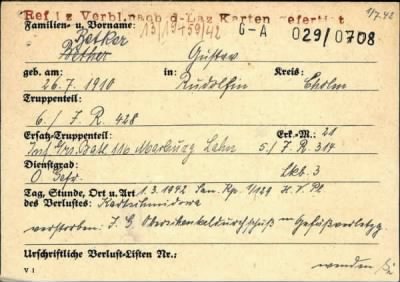 1/7.42
Ref iz Verbl.nach d-Laz Karten gefertigt
Familien- u. Vorname: 13/19+59/42 G-A 029/0708
Betker
Bether Gustav
geb. am: in: Kreis:
26.7.1910 Rudolfin Cholm
Truppenteil:
6./ J. R. 428
Ersatz-Truppenteil: Erk.-M.: 21
Inf. Ers. Batl. 116 Marburg Lahn 5/ J. R. 314
Dienstgrad:
O Gefr. Lkb. 3
Tag, Stunde, Ort u. Art 1.3.1942 San. Kp. 1/129 H. V. Pl
des Verlustes:
verstorben: J. G. Oberschenkeldurchschuß m Gefäßverletzg.
Urschriftliche Verlust-Listen Nr.:
wenden
V 1